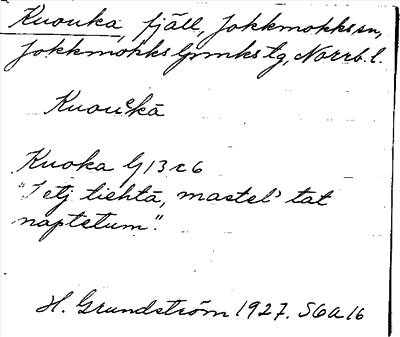 Kuouka, fjäll, Jokkmokks sn,
Jokkmokks lpmks tg, Norrb. l.
Kuouᵉkā
Kuoka G13 c6
"I etj tiehtā, mastel' tat
naptetum".
H. Grundström 1927. S6a16